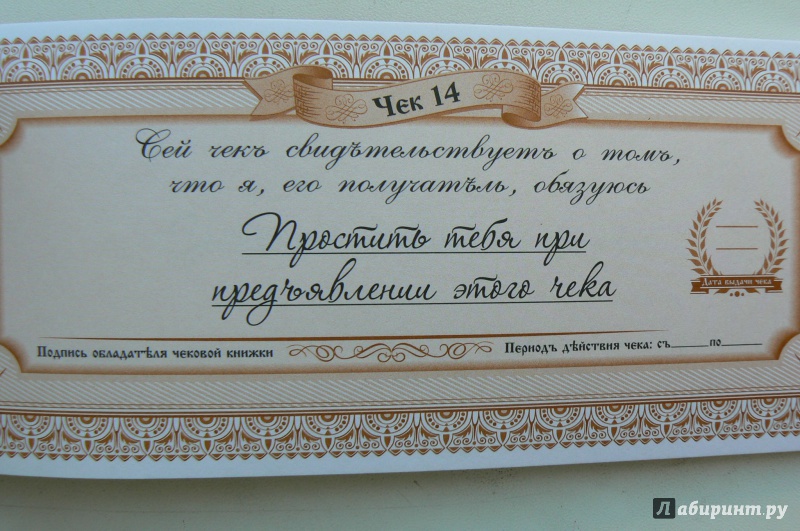 Чек 14
Сей чекъ свидѣтельствуетъ о томъ,
что я, его получатѣль, обязуюсь
Простить тебя при
предъявлении этого чека
Дата выдачи чека
Подпись обладатѣля чековой книжки
Периодъ дѣйствия чека: съ______по______
Лабиринт.ру